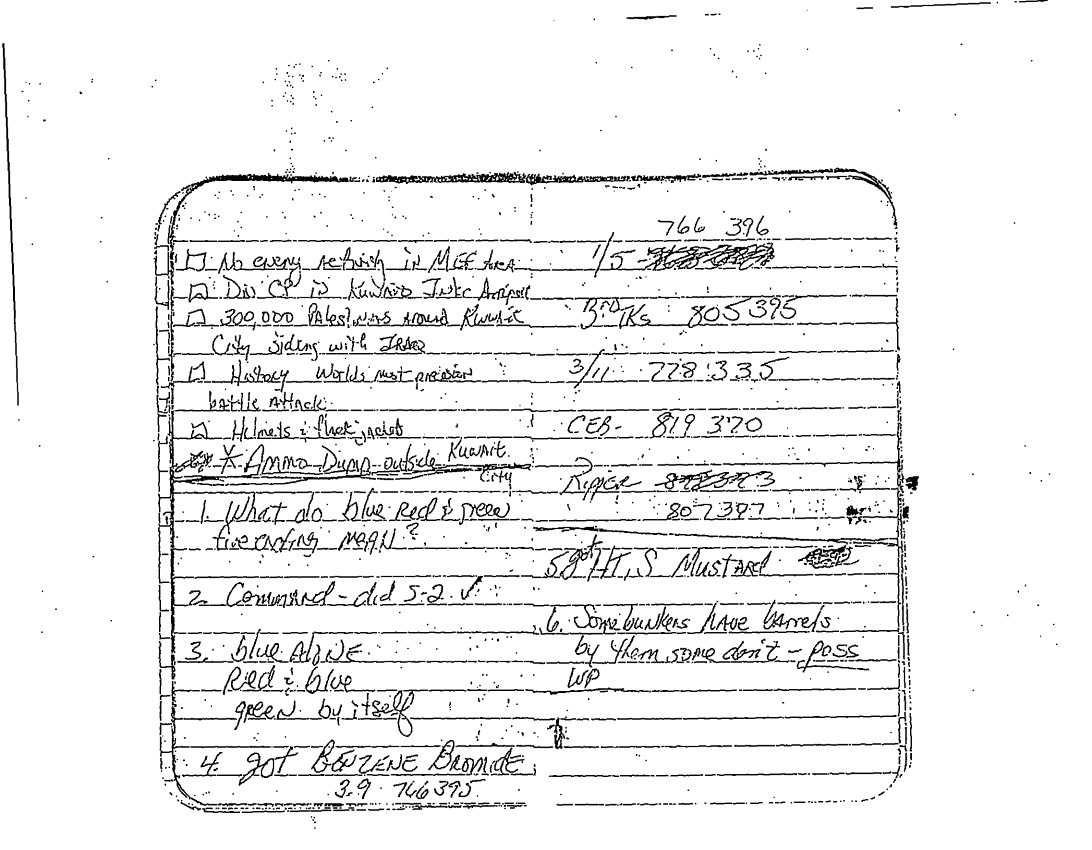 □ No enemy activity in MEF area
□ Div CP is Kuwait Intr Airport
□ 300,000 Palestinians around Kuwait
City siding with IRAQ
□ History Worlds most precision
battle Attack
□ Helmets & flack jacket
* Ammo Dump outside Kuwait
City
1. What do blue Red & green
five mean?
2. Command - did S-2 ✓
3. blue Alone
Red & blue
green by itself
4. got BENZENE Bromide
3.9 766395
766 396
1/5
3rd TKs 805395
3/11 778335
CEB - 819 370
Ripper
807397
5 got HT, S Mustard
6. Some bunkers have barrels
by them some don't - poss
WP